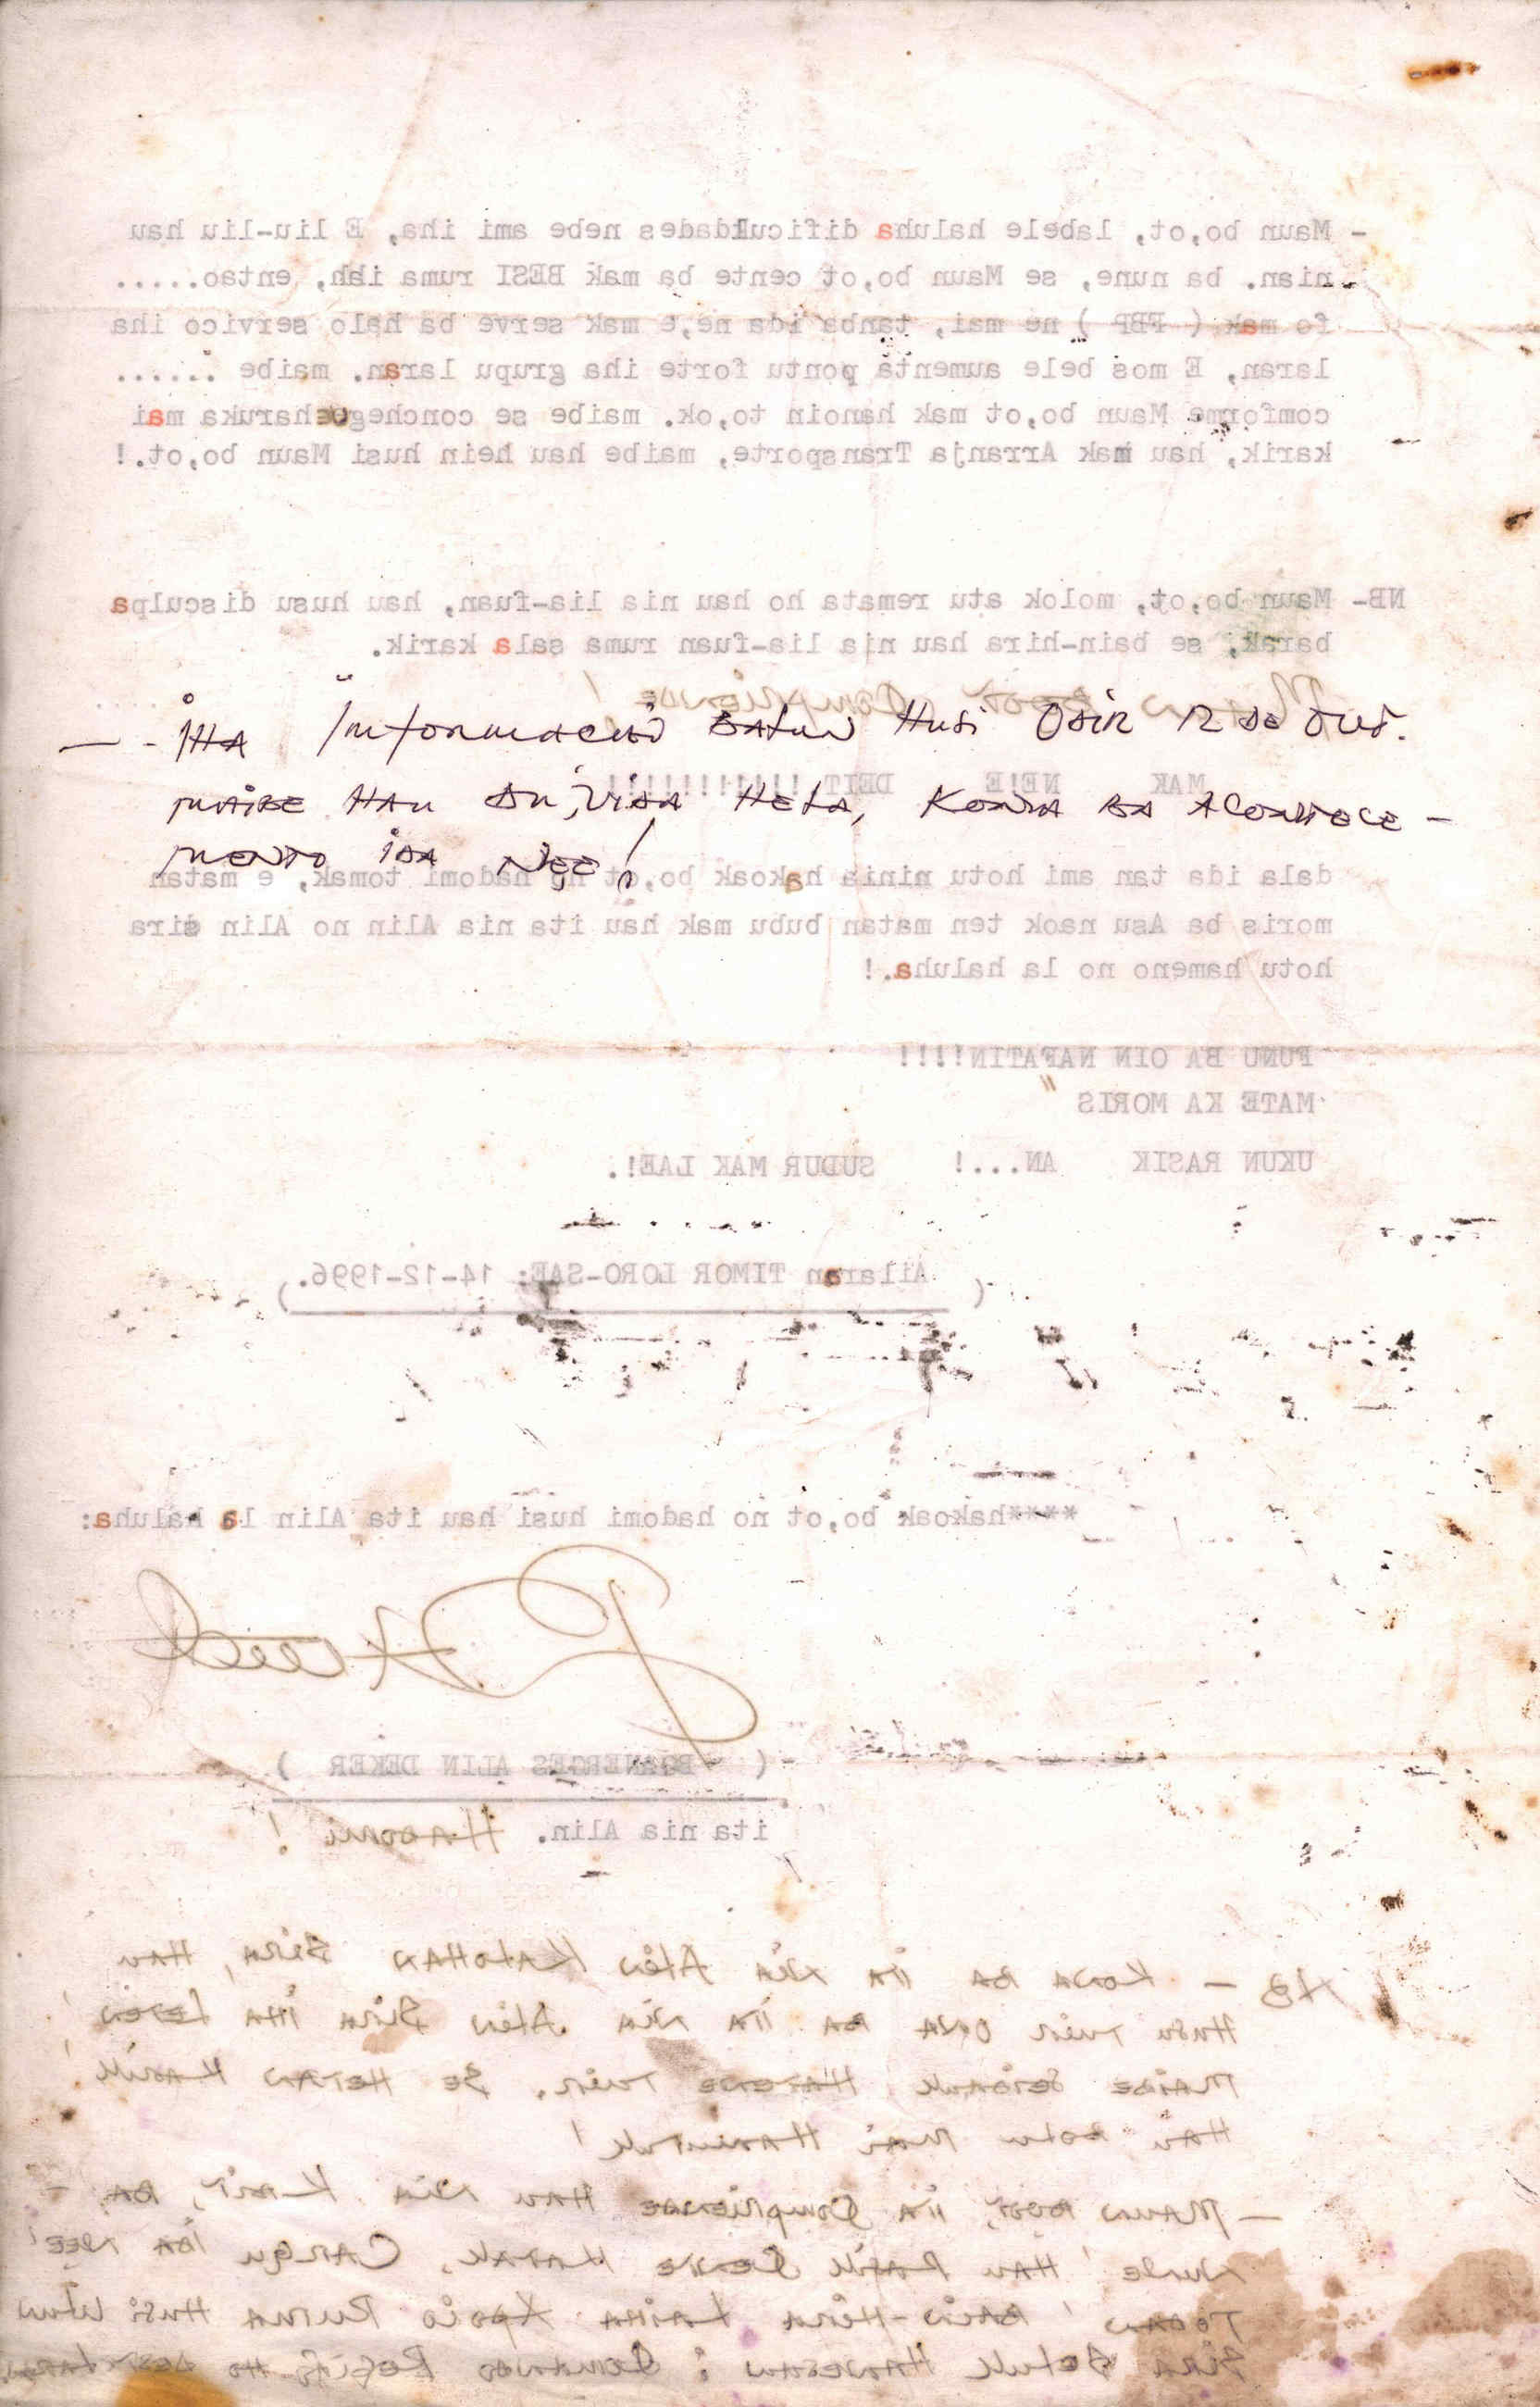 - Maun bo,ot, labele haluha dificuldades nebe ami iha, E liu-liu hau
nian. ba nune, se Maun bo,ot cente ba mak BESI ruma iah, entao.....
fo mak ( FBP ) ne mai, tanba ida ne,e mak serve ba halo servico iha
laran, E mos bele aumenta pontu forte iha grupu laran. maibe ......
comforme Maun bo,ot mak hanoin to,ok. maibe se conchegue haruka mai
karik, hau mak Arranja Transporte, maibe hau hein husi Maun bo,ot.!
NB- Maun bo,ot, molok atu remata ho hau nia lia-fuan, hau husu disculpa
barak, se bain-hira hau nia lia-fuan ruma sala karik.
Maun Boot Compriende !
— - IHA Informacão BALUN HUSI OSIR 12 DE OUT.
MAK NE!E DEIT !!!!!!!!!!!
MAIBE HAU DUVIDA HELA, KONA BA ACONTECE-
MENTO IDA NEE!
dala ida tan ami hotu ninia hakoak bo,ot no hadomi tomak, e matan
moris ba Asu naok ten matan bubu mak hau ita nia Alin no Alin sira
hotu hameno no la haluha.!
FUNU BA OIN NAFATIN!!!!
MATE KA MORIS "
UKUN RASIK AN...! SUDUR MAK LAE!.
( Ailaran TIMOR LORO-SAE: 14-12-1996.)
****hakoak bo,ot no hadomi husi hau ita Alin la haluha:
( BOANERGES ALIN DEKER )
ita nia Alin. HADOMI !
NB - KONA BA ITA NIA ALIN KALOHAN SIRA, HAU
HUSU TUIR ONA BA ITA NIA ALIN SIRA IHA LETEN!
MAIBE SEIDAUK HATENE TUIR. SE HETAN KARIK!
HAU BOLU MAI HAMUTUK!
- MAUN BOOT, ITA COMPRIENDE HAU NIA KBIIT, BA -
NUNE! HAU RASIK CENTE KATAK, CARGU IDA NEE!
TODAN! BAIN-HIRA LAIHA APOIO RUMA HUSI ULUN
SIRA